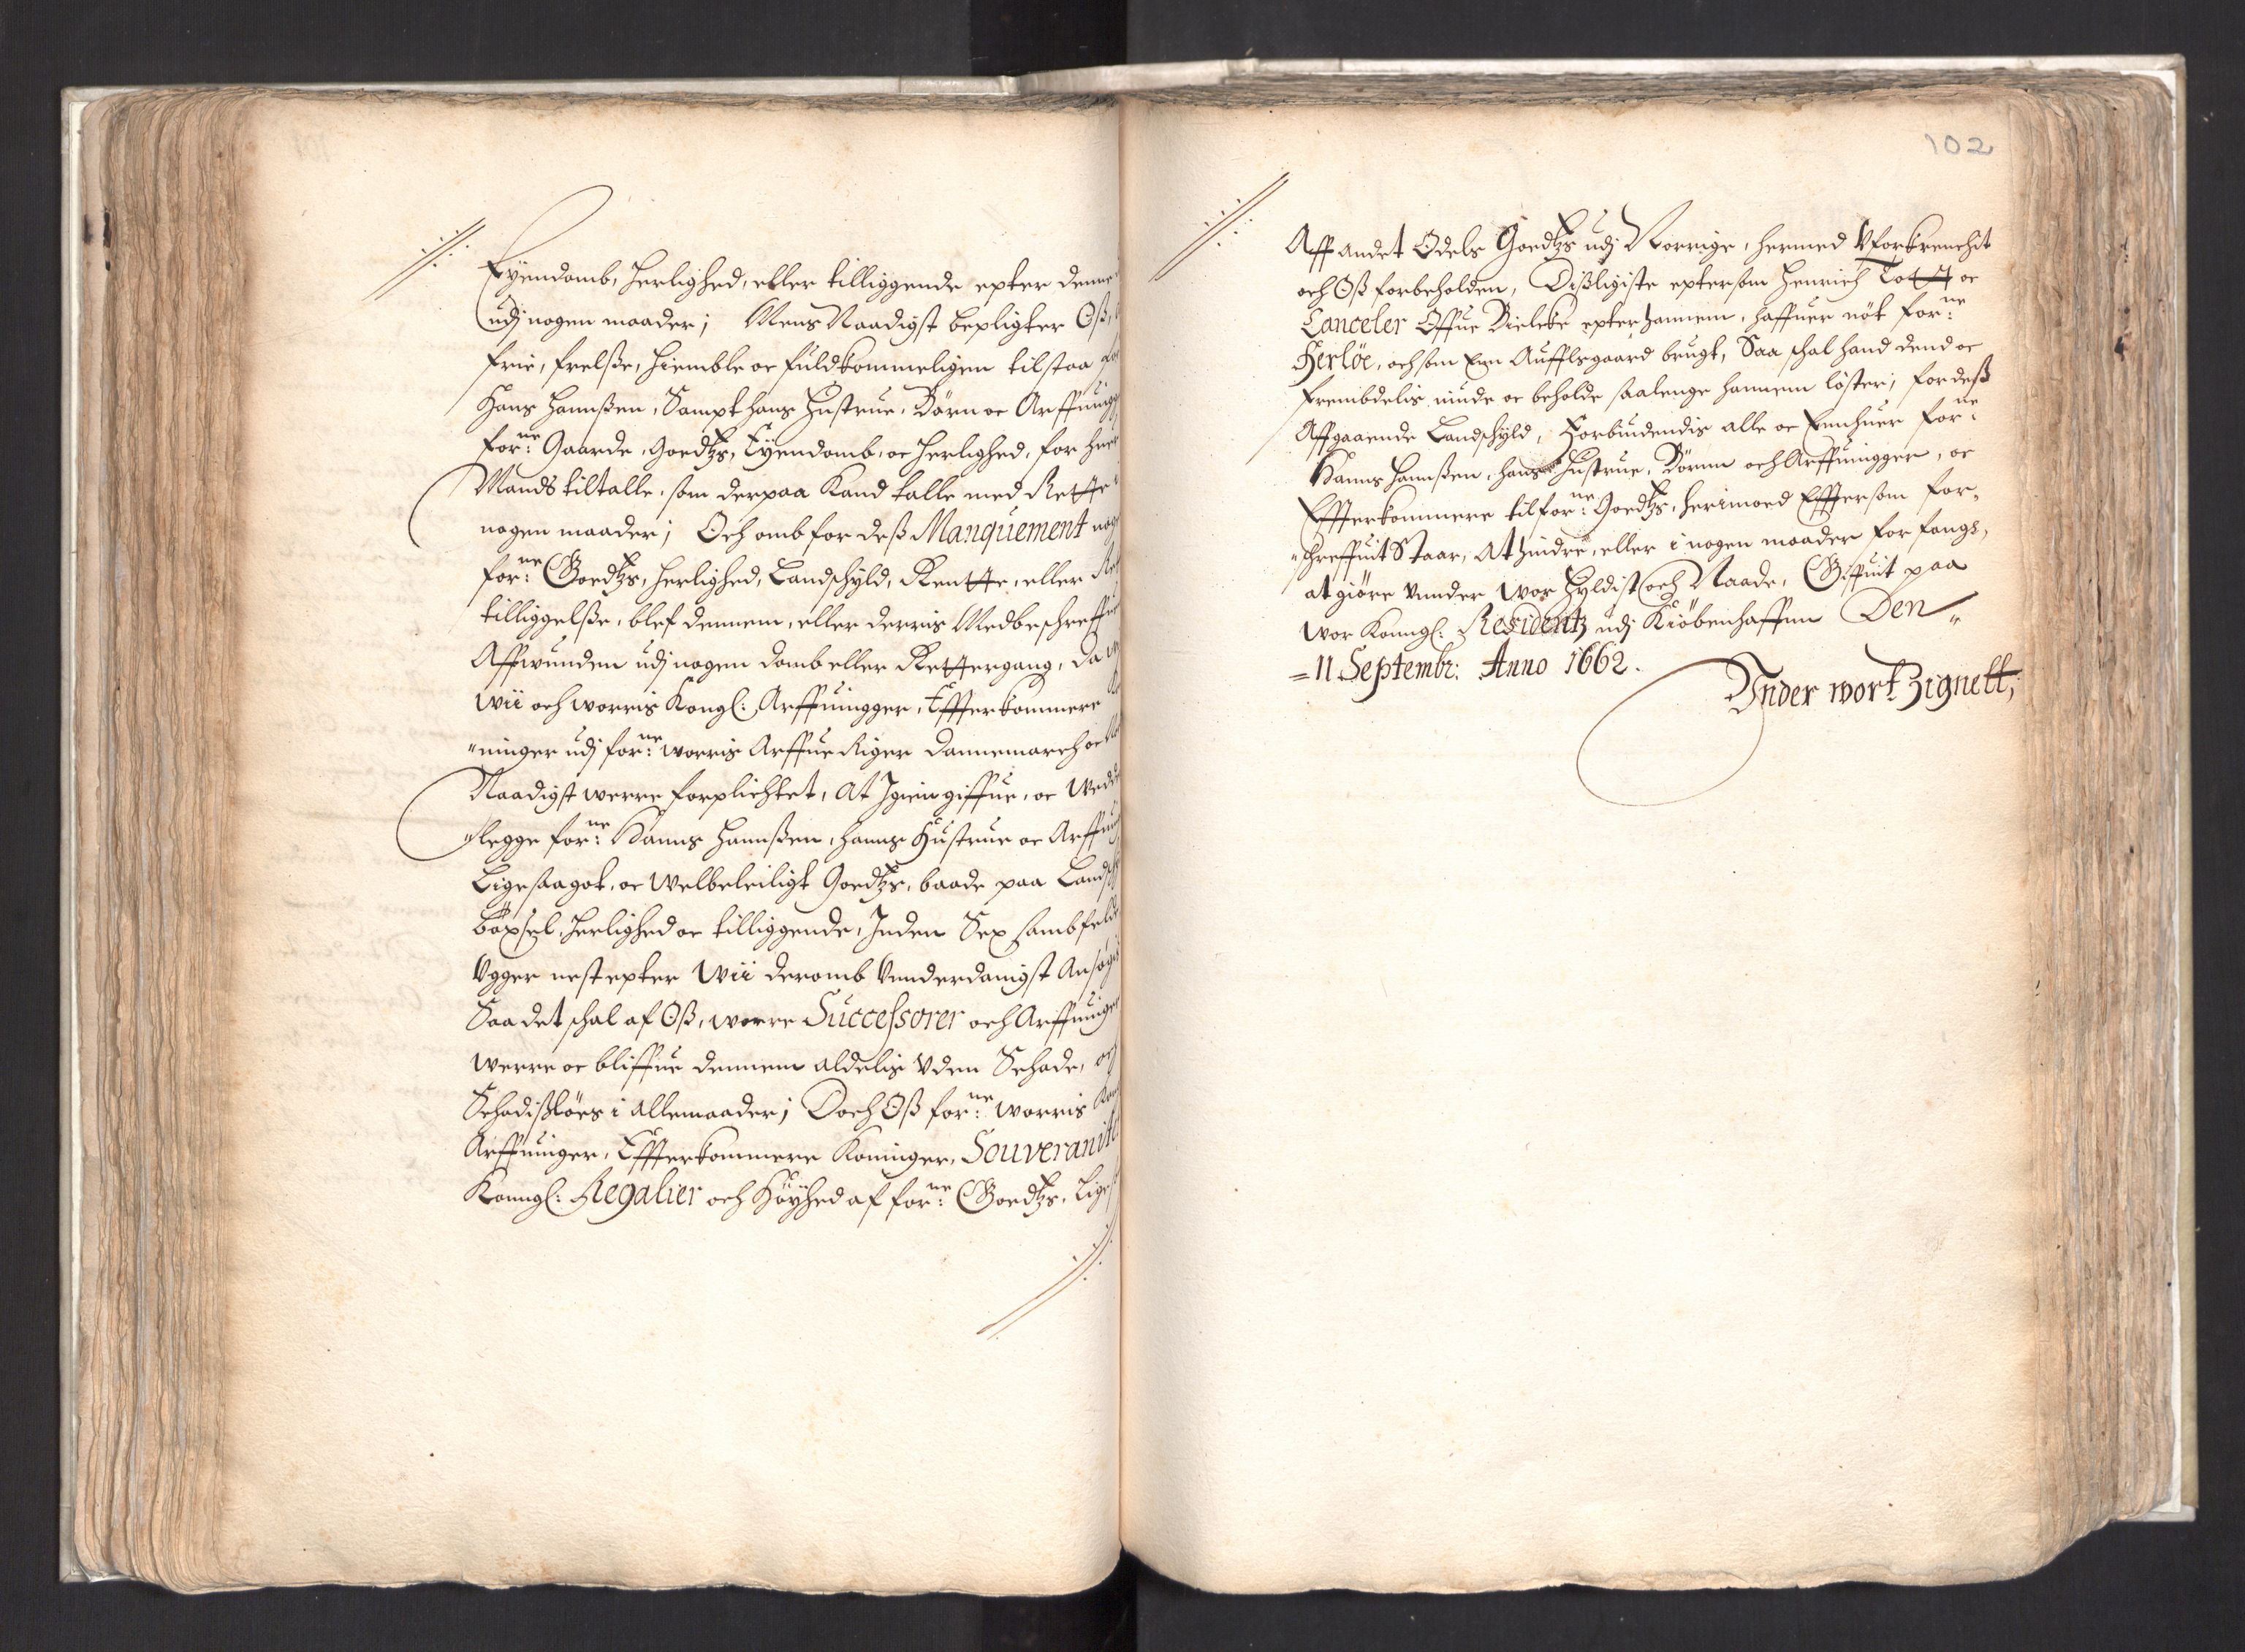 Eyendomb, Herlighed, eller tilliggende epter denne
udj nogen maader; Mens Naadigst bepligter Oß,
frie, frelße, hiemble oc fuldkommeligen tilstaa
Hans Hannßen, Sampt hans Hustrue, Börn oc Arffuing
for:ne Gaarde, Goedtzs, Eyendomb, oc Herlighed, for huer
Mands tiltalle, som derpaa Kand talle med Rette i
nogen maader; Och omb for deß Manquement nog
for:ne Goedtzs, Herlighed, Landschyld, Rentte, eller
tilliggelße, blef dennem, eller derris Medbeschreffu
Affwunden udj nogen domb eller Rettergang, da
Wii och worris Kongl: Arffuingger, Effterkommere
"ninger udj for:ne worris Arffue Riger Dannemarch oc
Naadigst werre forplichtet, at Igien giffue, oc Wed
"legge for:ne Hanns Hannßen, hanns Hustrue oc Arffu
Ligesaagot, oc Welbeleiligt Goedtzs, baade paa Landsch
böxsel, Herlighed oc tilliggende, Inden Sex samb felde
Vgger nest epter Wii deromb Vnnderdanigst Ansøg
Saa det schal af Oß, worre Successorer och Arffuinger
werre oc bliffue dennem aldelis Vden Schade, och
Schadisløes i alle maader; Doch Oß for:ne worris
Arffuinger, Effterkommere Koninger, Souveranitet
Konngl: Regalier och Höyhed af for:ne Goedtzs, Liges
102
Aff andet Odels Goedtzs udj Norrige, hermed Vforkrenchit
och Oß forbeholden, Dißligiste eptersom Henrich Tott oc
Canceler Offue Bielcke epter hannem, haffuer nöt for:ne
Herlöe, och som Een Auffls gaard brugt, Saa schal hand dend oc
frembdelis niude oc beholde saalenge hannem löster, for deß
Affgaaende Landschyld, Forbiudendis alle oc Eenhuer for:ne
Hanns Hannßen, hans Hustrue, Börnn och Arffuingger, oc
Effterkommere til for:ne Goedtzs, herimoed Efftersom for,
"schreffuit Staar, At hindre, eller i nogen maader for fang,
at giöre vnnder Wor Hyldist och Naade, Giffuit paa
wor Konngl: Residentz udj Kiöbenhaffnn Den
= 11 Septembr: Anno 1662.
Vnder wort Zignett;